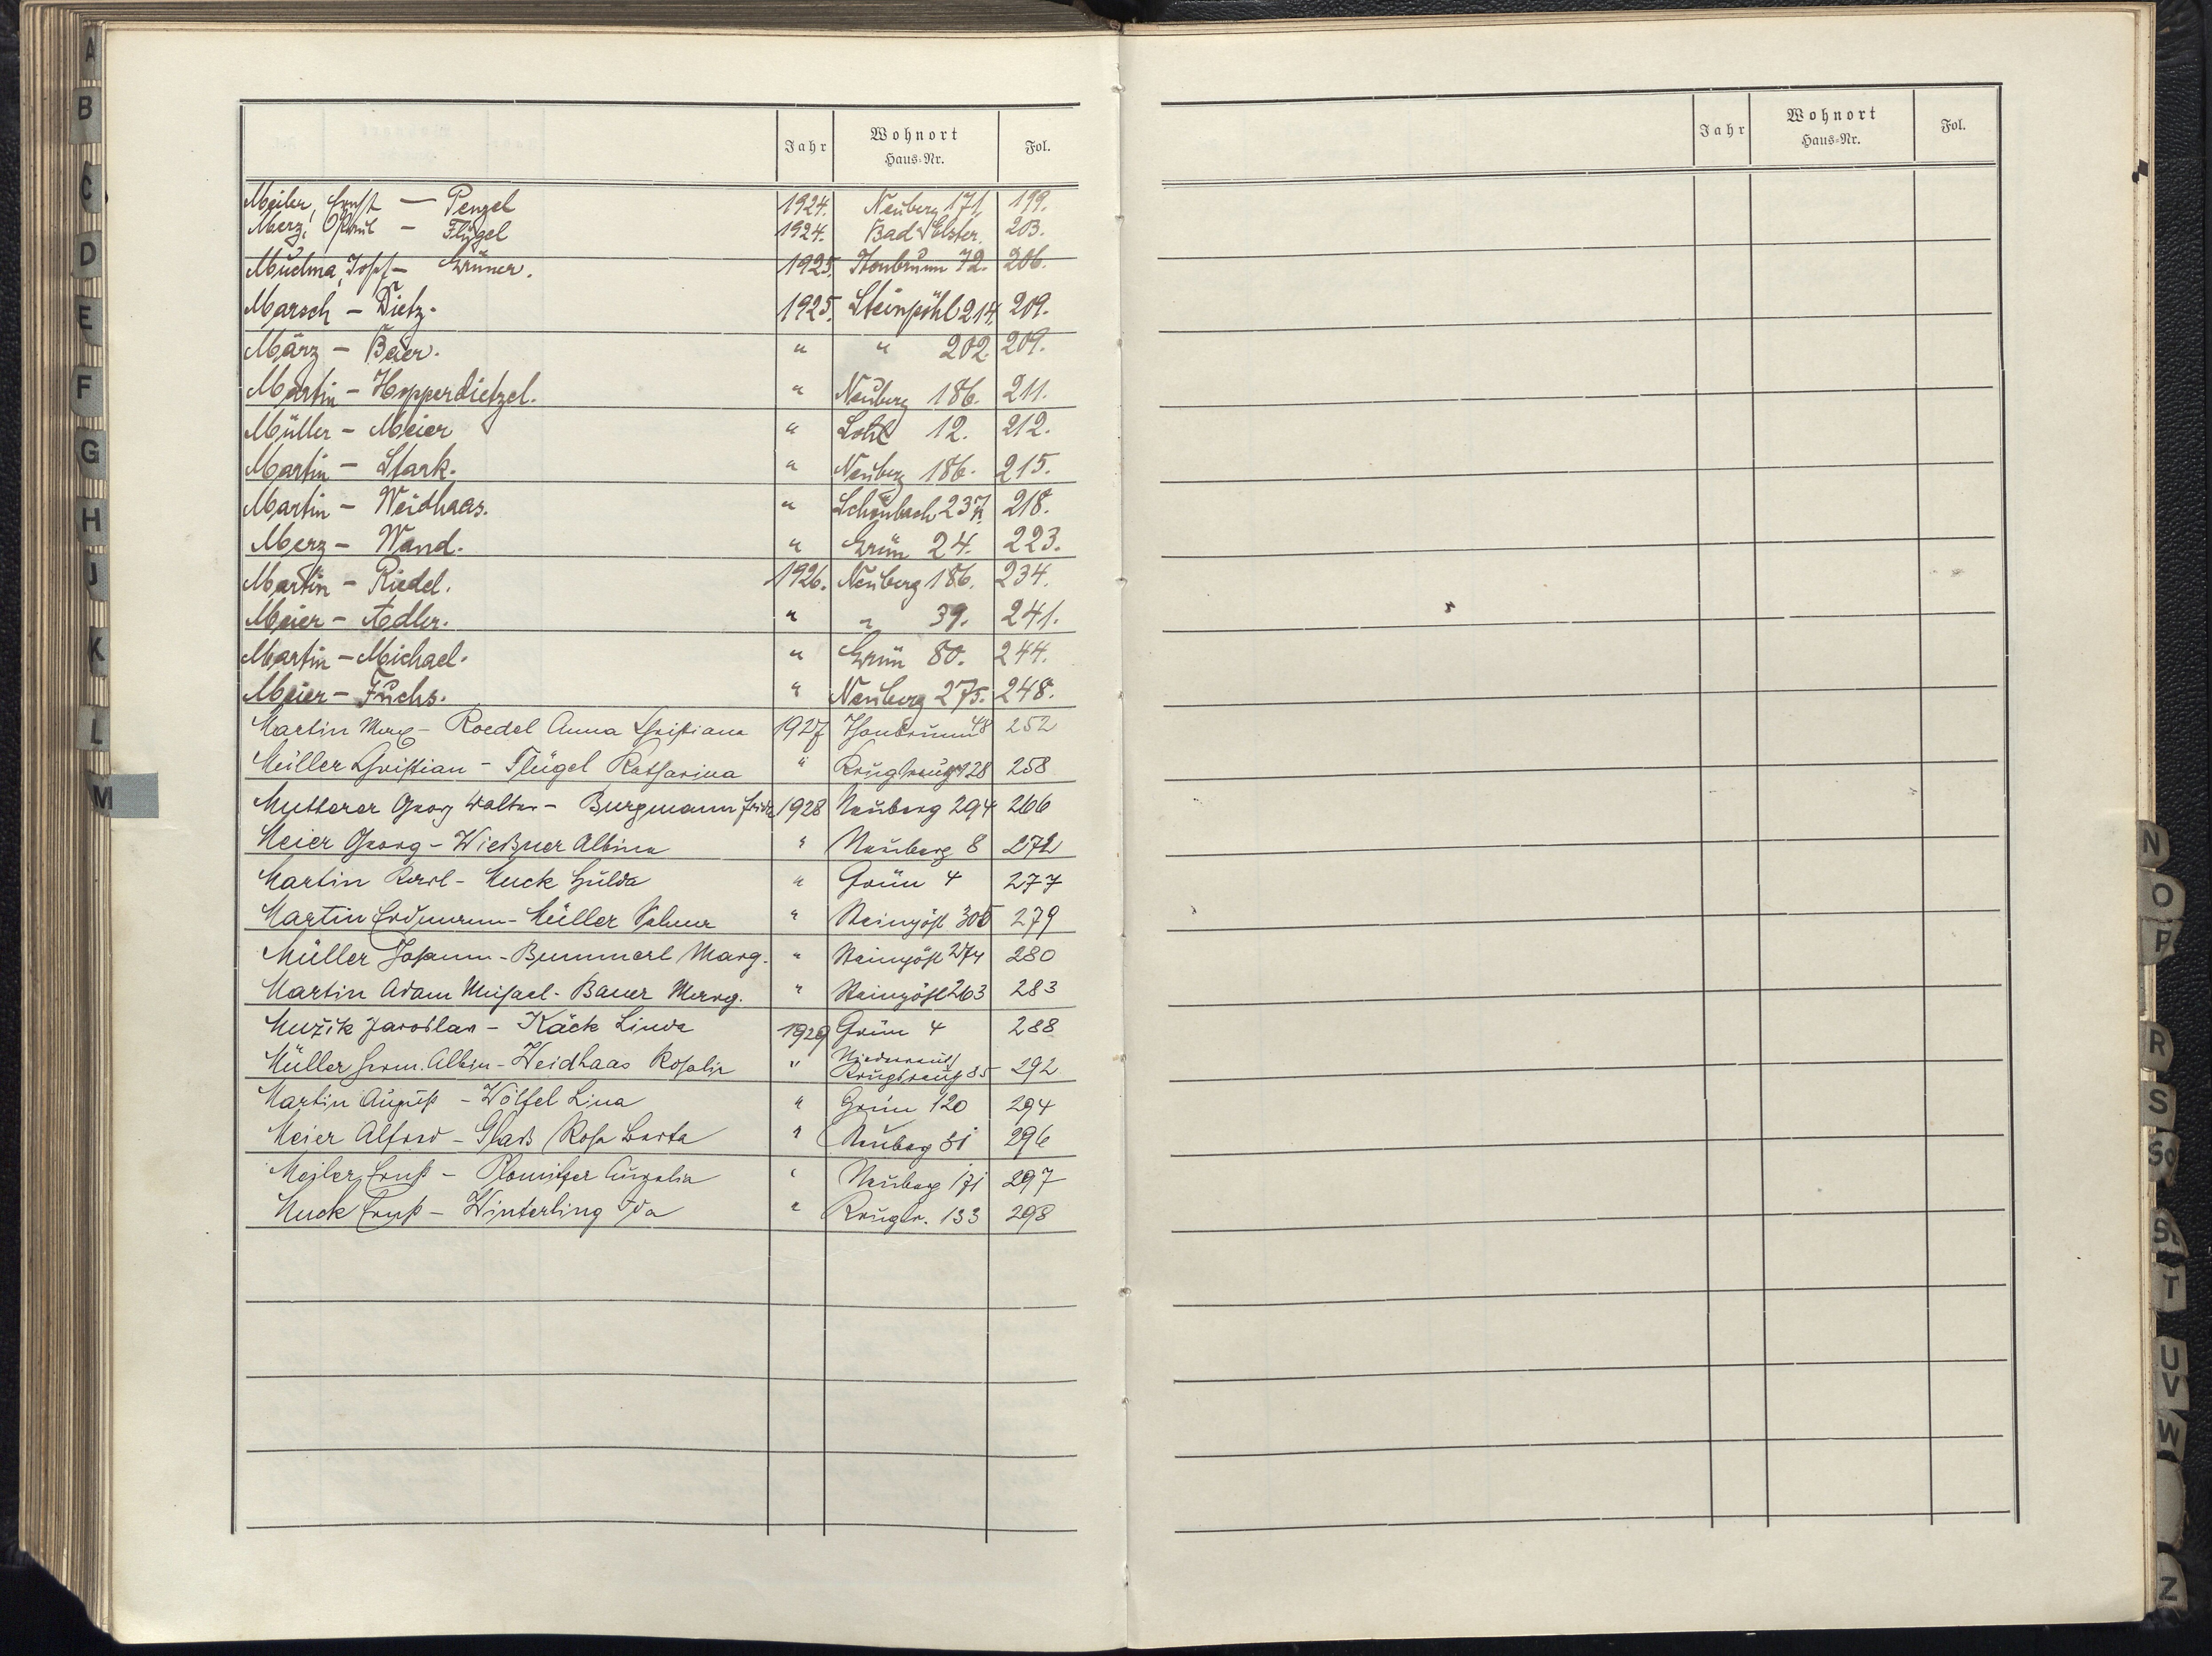 Jahr Wohnort Haus=Nr. Fol.
Meiler, Ernst — Penzel 1924. Neuberg 171 199.
Merz, — Flügel 1924. Bad Elster. 203.
Mudma, Josef — Grüner. 1925. Thonbrunn 72. 206.
Marsch — Dietz. 1925. Steinpöhl 214. 209.
März — Baier. " " 202. 209.
Martin — Hopperdietzel. " Neuberg 186. 211.
Müller — Meier " Lohe 12. 212.
Martin — Stark. " Neuberg 186. 215.
Martin — Weidhaas. " Schönbach 237. 218.
Merz — Wand. " Grün 24. 223.
Martin — Riedel. 1926. Neuberg 186. 234.
Meier — Adler. " " 39. 241.
Martin — Michael. " Grün 80. 244.
Meier — Fuchs. " Neuberg 275. 248.
Martin Max — Roedel Anna Christiana 1927 Thonbrunn 48 252
Müller Christian — Flügel Katharina " Krugsreuth 128 258
Mutterer Georg Walter — Burgmann Frida 1928 Neuberg 294 266
Meier Georg — Wießner Albine " Neuberg 8 272
Martin Karl — Muck Hulda " Grün 4 277
Martin Erdmann — Müller Selma " Steinpöhl 305 279
Müller Johann — Bummerl Marg. " Steinpöhl 274 280
Martin Adam Michael — Bauer Marg. " Steinpöhl 263 283
Mužik Jaroslav — Käck Linda 1929 Grün 4 288
Müller Herm. Albin — Weidhaas Rosalie " Niederreuth Krugsreuth 85 292
Martin August — Wölfel Lina " Grün 120 294
Meier Alfred — Glaß Rosa Berta " Neuberg 81 296
Meiler Ernst — Plomitzer " Neuberg 171 297
Muck Ernst — Winterling Ida " Krugsr. 133 298
Jahr Wohnort Haus=Nr. Fol.
A
B
C
D
E
F
G
H
J
K
L
M
N
O
P
R
S
Sc
St
T
U
V
W
Z